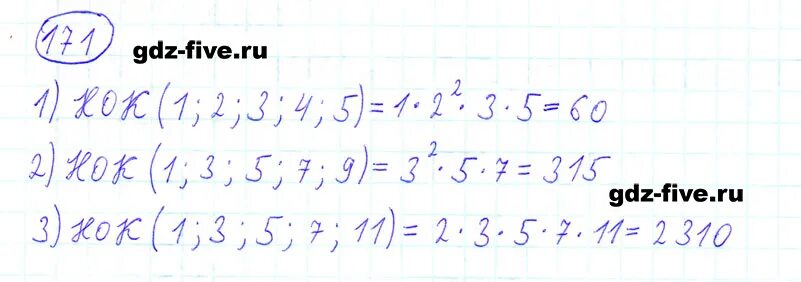 171
gdz-five.ru
1) НОК (1; 2; 3; 4; 5) = 1·2²·3·5 = 60
2) НОК (1; 3; 5; 7; 9) = 3²·5·7 = 315
gdz-five.ru
3) НОК (1; 3; 5; 7; 11) = 2·3·5·7·11 = 2310